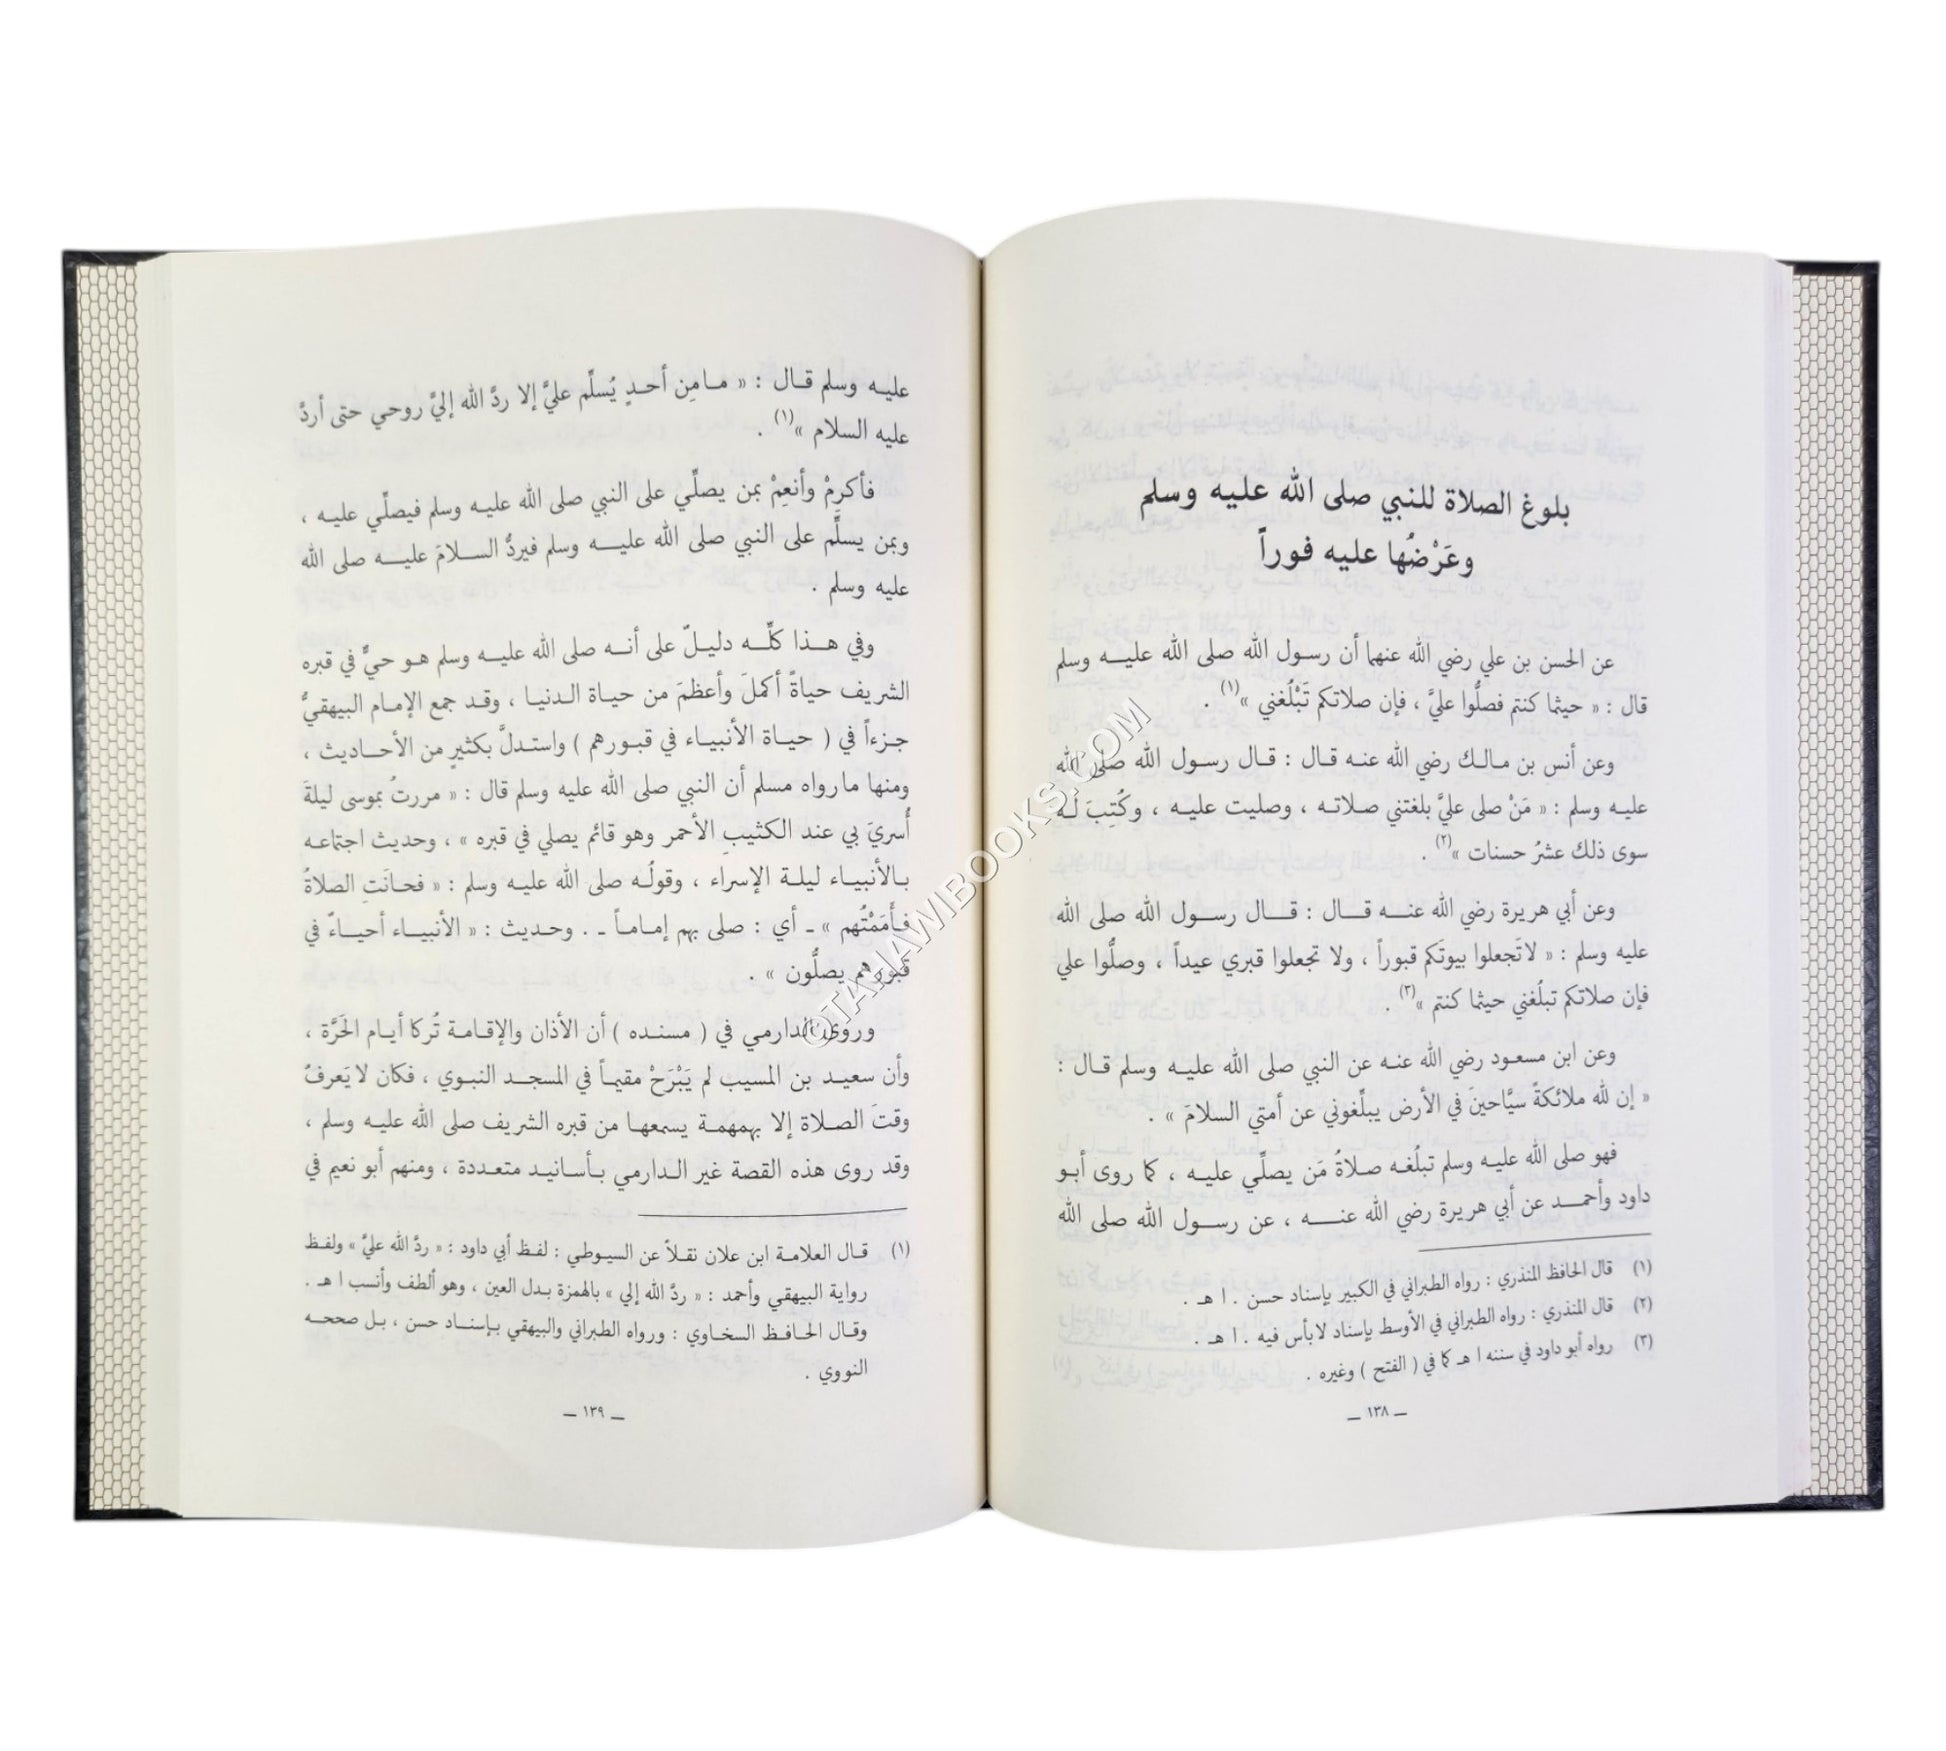 بلوغ الصلاة للنبي صلى الله عليه وسلم
وعَرْضُها عليه فوراً
عن الحسن بن علي رضي الله عنهما أن رسول الله صلى الله عليه وسلم
قال : « حيثما كنتم فصلُّوا عليَّ ، فإن صلاتكم تَبْلُغني »(١) .
وعن أنس بن مالك رضي الله عنه قال : قال رسول الله صلى الله
عليه وسلم : « مَنْ صلى عليَّ بلغتني صلاته ، وصليت عليه ، وكُتِبَ له
سوى ذلك عشرُ حسنات »(٢) .
وعن أبي هريرة رضي الله عنه قال : قال رسول الله صلى الله
عليه وسلم : « لا تَجعلوا بيوتَكم قبوراً ، ولا تجعلوا قبري عيداً ، وصلُّوا علي
فإن صلاتكم تبلُغني حيثما كنتم »(٣) .
وعن ابن مسعود رضي الله عنه عن النبي صلى الله عليه وسلم قال :
« إن لله ملائكةً سيَّاحينَ في الأرض يبلِّغوني عن أمتي السلامَ » .
فهو صلى الله عليه وسلم تبلُغه صلاةُ مَن يصلِّي عليه ، كما روى أبو
داود وأحمد عن أبي هريرة رضي الله عنه ، عن رسول الله صلى الله
(١) قال الحافظ المنذري : رواه الطبراني في الكبير بإسناد حسن . ا هـ .
(٢) قال المنذري : رواه الطبراني في الأوسط بإسناد لا بأس فيه . ا هـ .
(٣) رواه أبو داود في سننه ا هـ كما في ( الفتح ) وغيره .
ــ ١٣٨ ــ
عليه وسلم قال : « ما مِن أحدٍ يُسلِّم عليَّ إلا ردَّ الله إليَّ روحي حتى أردَّ
عليه السلام »(١) .
فأكرِمْ وأنعِمْ بمن يصلِّي على النبي صلى الله عليه وسلم فيصلِّي عليه ،
وبمن يسلِّم على النبي صلى الله عليه وسلم فيردُّ السلامَ عليه صلى الله
عليه وسلم .
وفي هذا كلِّه دليلٌ على أنه صلى الله عليه وسلم هو حيٌّ في قبره
الشريف حياةً أكملَ وأعظمَ من حياة الدنيا ، وقد جمع الإمام البيهقيُّ
جزءاً في ( حياة الأنبياء في قبورهم ) واستدلَّ بكثيرٍ من الأحاديث ،
ومنها ما رواه مسلم أن النبي صلى الله عليه وسلم قال : « مررتُ بموسى ليلةَ
أُسريَ بي عند الكثيبِ الأحمر وهو قائم يصلي في قبره » ، وحديث اجتماعه
بالأنبياء ليلة الإسراء ، وقولُه صلى الله عليه وسلم : « فحانَتِ الصلاةُ
فأَمَمْتُهم » ـ أي : صلى بهم إماماً ـ . وحديث : « الأنبياء أحياءٌ في
قبورهم يصلُّون » .
وروى الدارمي في ( مسنده ) أن الأذان والإقامة تُركا أيام الحَرَّة ،
وأن سعيد بن المسيب لم يَبْرَحْ مقيماً في المسجد النبوي ، فكان لا يَعرفُ
وقتَ الصلاة إلا بهمهمة يسمعها من قبره الشريف صلى الله عليه وسلم ،
وقد روى هذه القصة غير الدارمي بأسانيد متعددة ، ومنهم أبو نعيم في
(١) قال العلامة ابن علان نقلاً عن السيوطي : لفظ أبي داود : « ردَّ الله عليَّ » ولفظ
رواية البيهقي وأحمد : « ردَّ الله إلي » بالهمزة بدل العين ، وهو ألطف وأنسب ا هـ .
وقال الحافظ السخاوي : ورواه الطبراني والبيهقي بإسناد حسن ، بل صححه
النووي .
ــ ١٣٩ ــ
©TAHAWIBOOKS.COM